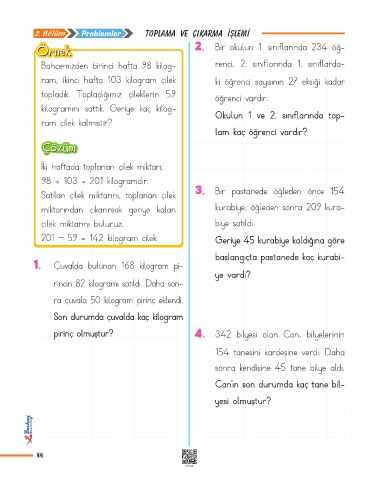 2. Bölüm Problemler TOPLAMA VE ÇIKARMA İŞLEMİ
Örnek
Bahçemizden birinci hafta 98 kilog-
ram, ikinci hafta 103 kilogram çilek
topladık. Topladığımız çileklerin 59
kilogramını sattık. Geriye kaç kilog-
ram çilek kalmıştır?
Çözüm
İki haftada toplanan çilek miktarı;
98 + 103 = 201 kilogramdır.
Satılan çilek miktarını, toplanan çilek
miktarından çıkarırsak geriye kalan
çilek miktarını buluruz.
201 – 59 = 142 kilogram çilek
1. Çuvalda bulunan 168 kilogram pi-
rincin 82 kilogramı satıldı. Daha son-
ra çuvala 50 kilogram pirinç eklendi.
Son durumda çuvalda kaç kilogram
pirinç olmuştur?
2. Bir okulun 1. sınıflarında 234 öğ-
renci, 2. sınıflarında 1. sınıflarda-
ki öğrenci sayısının 27 eksiği kadar
öğrenci vardır.
Okulun 1 ve 2. sınıflarında top-
lam kaç öğrenci vardır?
3. Bir pastanede öğleden önce 154
kurabiye, öğleden sonra 209 kura-
biye satıldı.
Geriye 45 kurabiye kaldığına göre
başlangıçta pastanede kaç kurabi-
ye vardı?
4. 342 bilyesi olan Can, bilyelerinin
154 tanesini kardeşine verdi. Daha
sonra kendisine 45 tane bilye aldı.
Can'ın son durumda kaç tane bil-
yesi olmuştur?
44